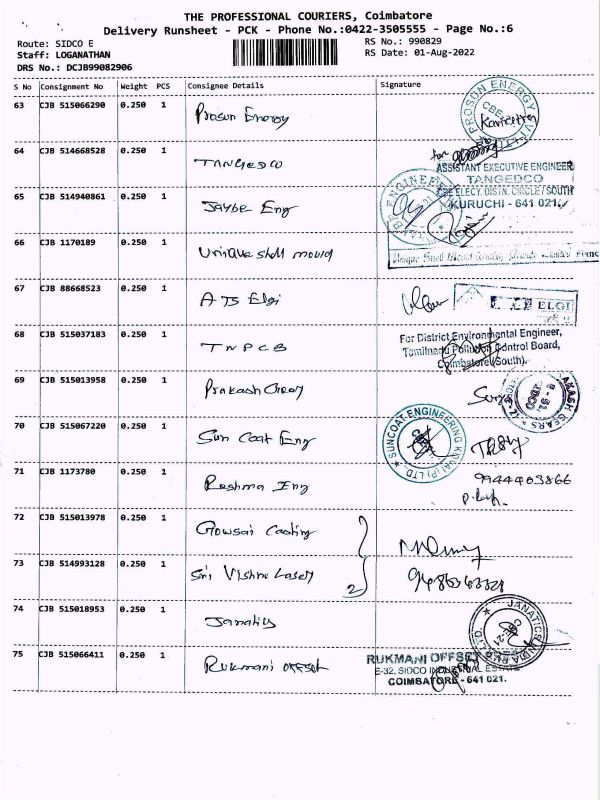 THE PROFESSIONAL COURIERS, Coimbatore
Delivery Runsheet - PCK - Phone No.:0422-3505555 - Page No.:6
Route: SIDCO E
RS No.: 990829
Staff: LOGANATHAN
RS Date: 01-Aug-2022
DRS No.: DCJB99082906
S No Consignment No Weight PCS Consignee Details Signature
63 CJB 515066290 0.250 1 Prosun Energy
PROSUN ENERGY
64 CJB 514668528 0.250 1 TANGEDCO
for
ASSISTANT EXECUTIVE ENGINEER
TANGEDCO
CBE ELECY. DISTN. CIRCLE / SOUTH
KURUCHI - 641 021.
65 CJB 514940861 0.250 1 Jaybe Eng
66 CJB 1170189 0.250 1 Unique shell mould
67 CJB 88668523 0.250 1 ATS Elgi
ELGI
68 CJB 515037183 0.250 1 TNPCB
For District Environmental Engineer,
Tamilnadu Pollution Control Board,
Coimbatore (South).
69 CJB 515013958 0.250 1 Prakash Gear
70 CJB 515067220 0.250 1 Sun Coat Eng
SUNCOAT ENGINEERING KOVAI (P) LTD.
71 CJB 1173780 0.250 1 Reshma Eng
9944403866
72 CJB 515013978 0.250 1 Gowsai Casting
73 CJB 514993128 0.250 1 Sri Vishnu Laser
2
74 CJB 515018953 0.250 1 Janatics
75 CJB 515066411 0.250 1 Rukmani offset
RUKMANI OFFSET PRESS
E-32, SIDCO INDUSTRIAL ESTATE
COIMBATORE - 641 021.